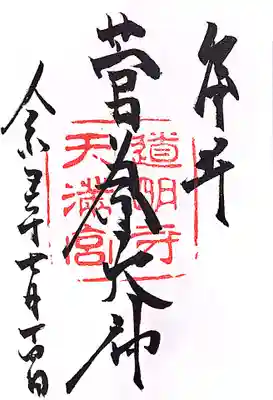 奉拝
菅原大神
道明寺
天満宮
令和五年七月十四日